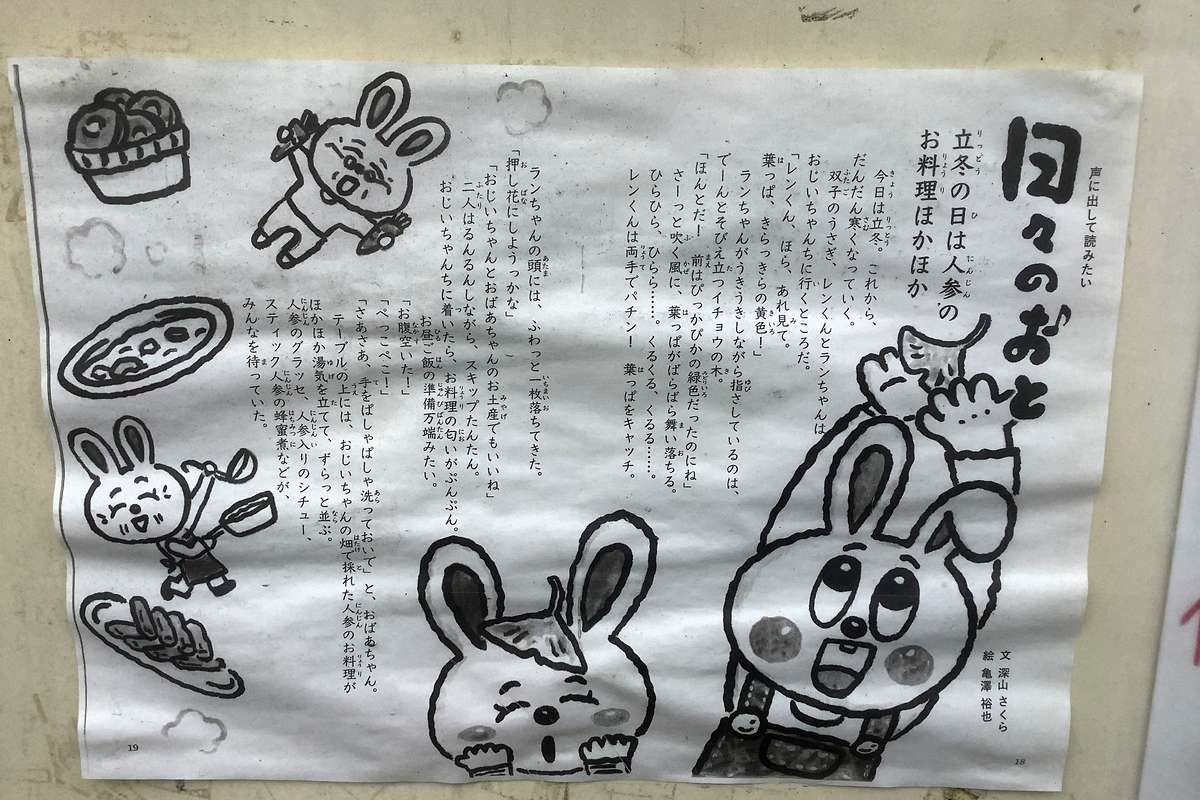 声に出して読みたい
日々のおと
立冬の日は人参の
お料理ほかほか
文 深山 さくら
絵 亀澤 裕也
今日は立冬。これから、
だんだん寒くなっていく。
双子のうさぎ、レンくんとランちゃんは
おじいちゃんちに行くところだ。
「レンくん、ほら、あれ見て。
葉っぱ、きらっきらの黄色!」
ランちゃんがうきうきしながら指さしているのは、
でーんとそびえ立つイチョウの木。
「ほんとだ! 前はぴっかぴかの緑色だったのにね」
さーっと吹く風に、葉っぱがぱらぱら舞い落ちる。
ひらひら、ひらら……。くるくる、くるる……。
レンくんは両手でパチン! 葉っぱをキャッチ。
ランちゃんの頭には、ふわっと一枚落ちてきた。
「押し花にしようっかな」
「おじいちゃんとおばあちゃんのお土産でもいいね」
二人はるんるんしながら、スキップたんたん。
おじいちゃんちに着いたら、お料理の匂いがぷんぷん。
お昼ご飯の準備万端みたい。
「お腹空いた!」
「ぺっこぺこ!」
「さあさあ、手をぱしゃぱしゃ洗っておいで」と、おばあちゃん。
テーブルの上には、おじいちゃんの畑で採れた人参のお料理が
ほかほか湯気を立てて、ずらっと並ぶ。
人参のグラッセ、人参入りのシチュー、
スティック人参の蜂蜜煮などが、
みんなを待っていた。
18
19